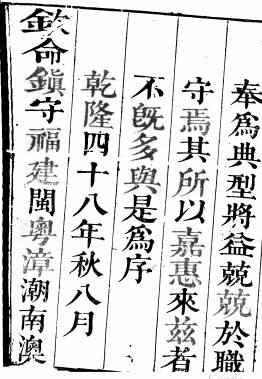 奉為典型將益兢兢於職
守焉其所以嘉惠來茲者
不既多與是為序
乾隆四十八年秋八月
欽命鎮守福建閩粵漳潮南澳